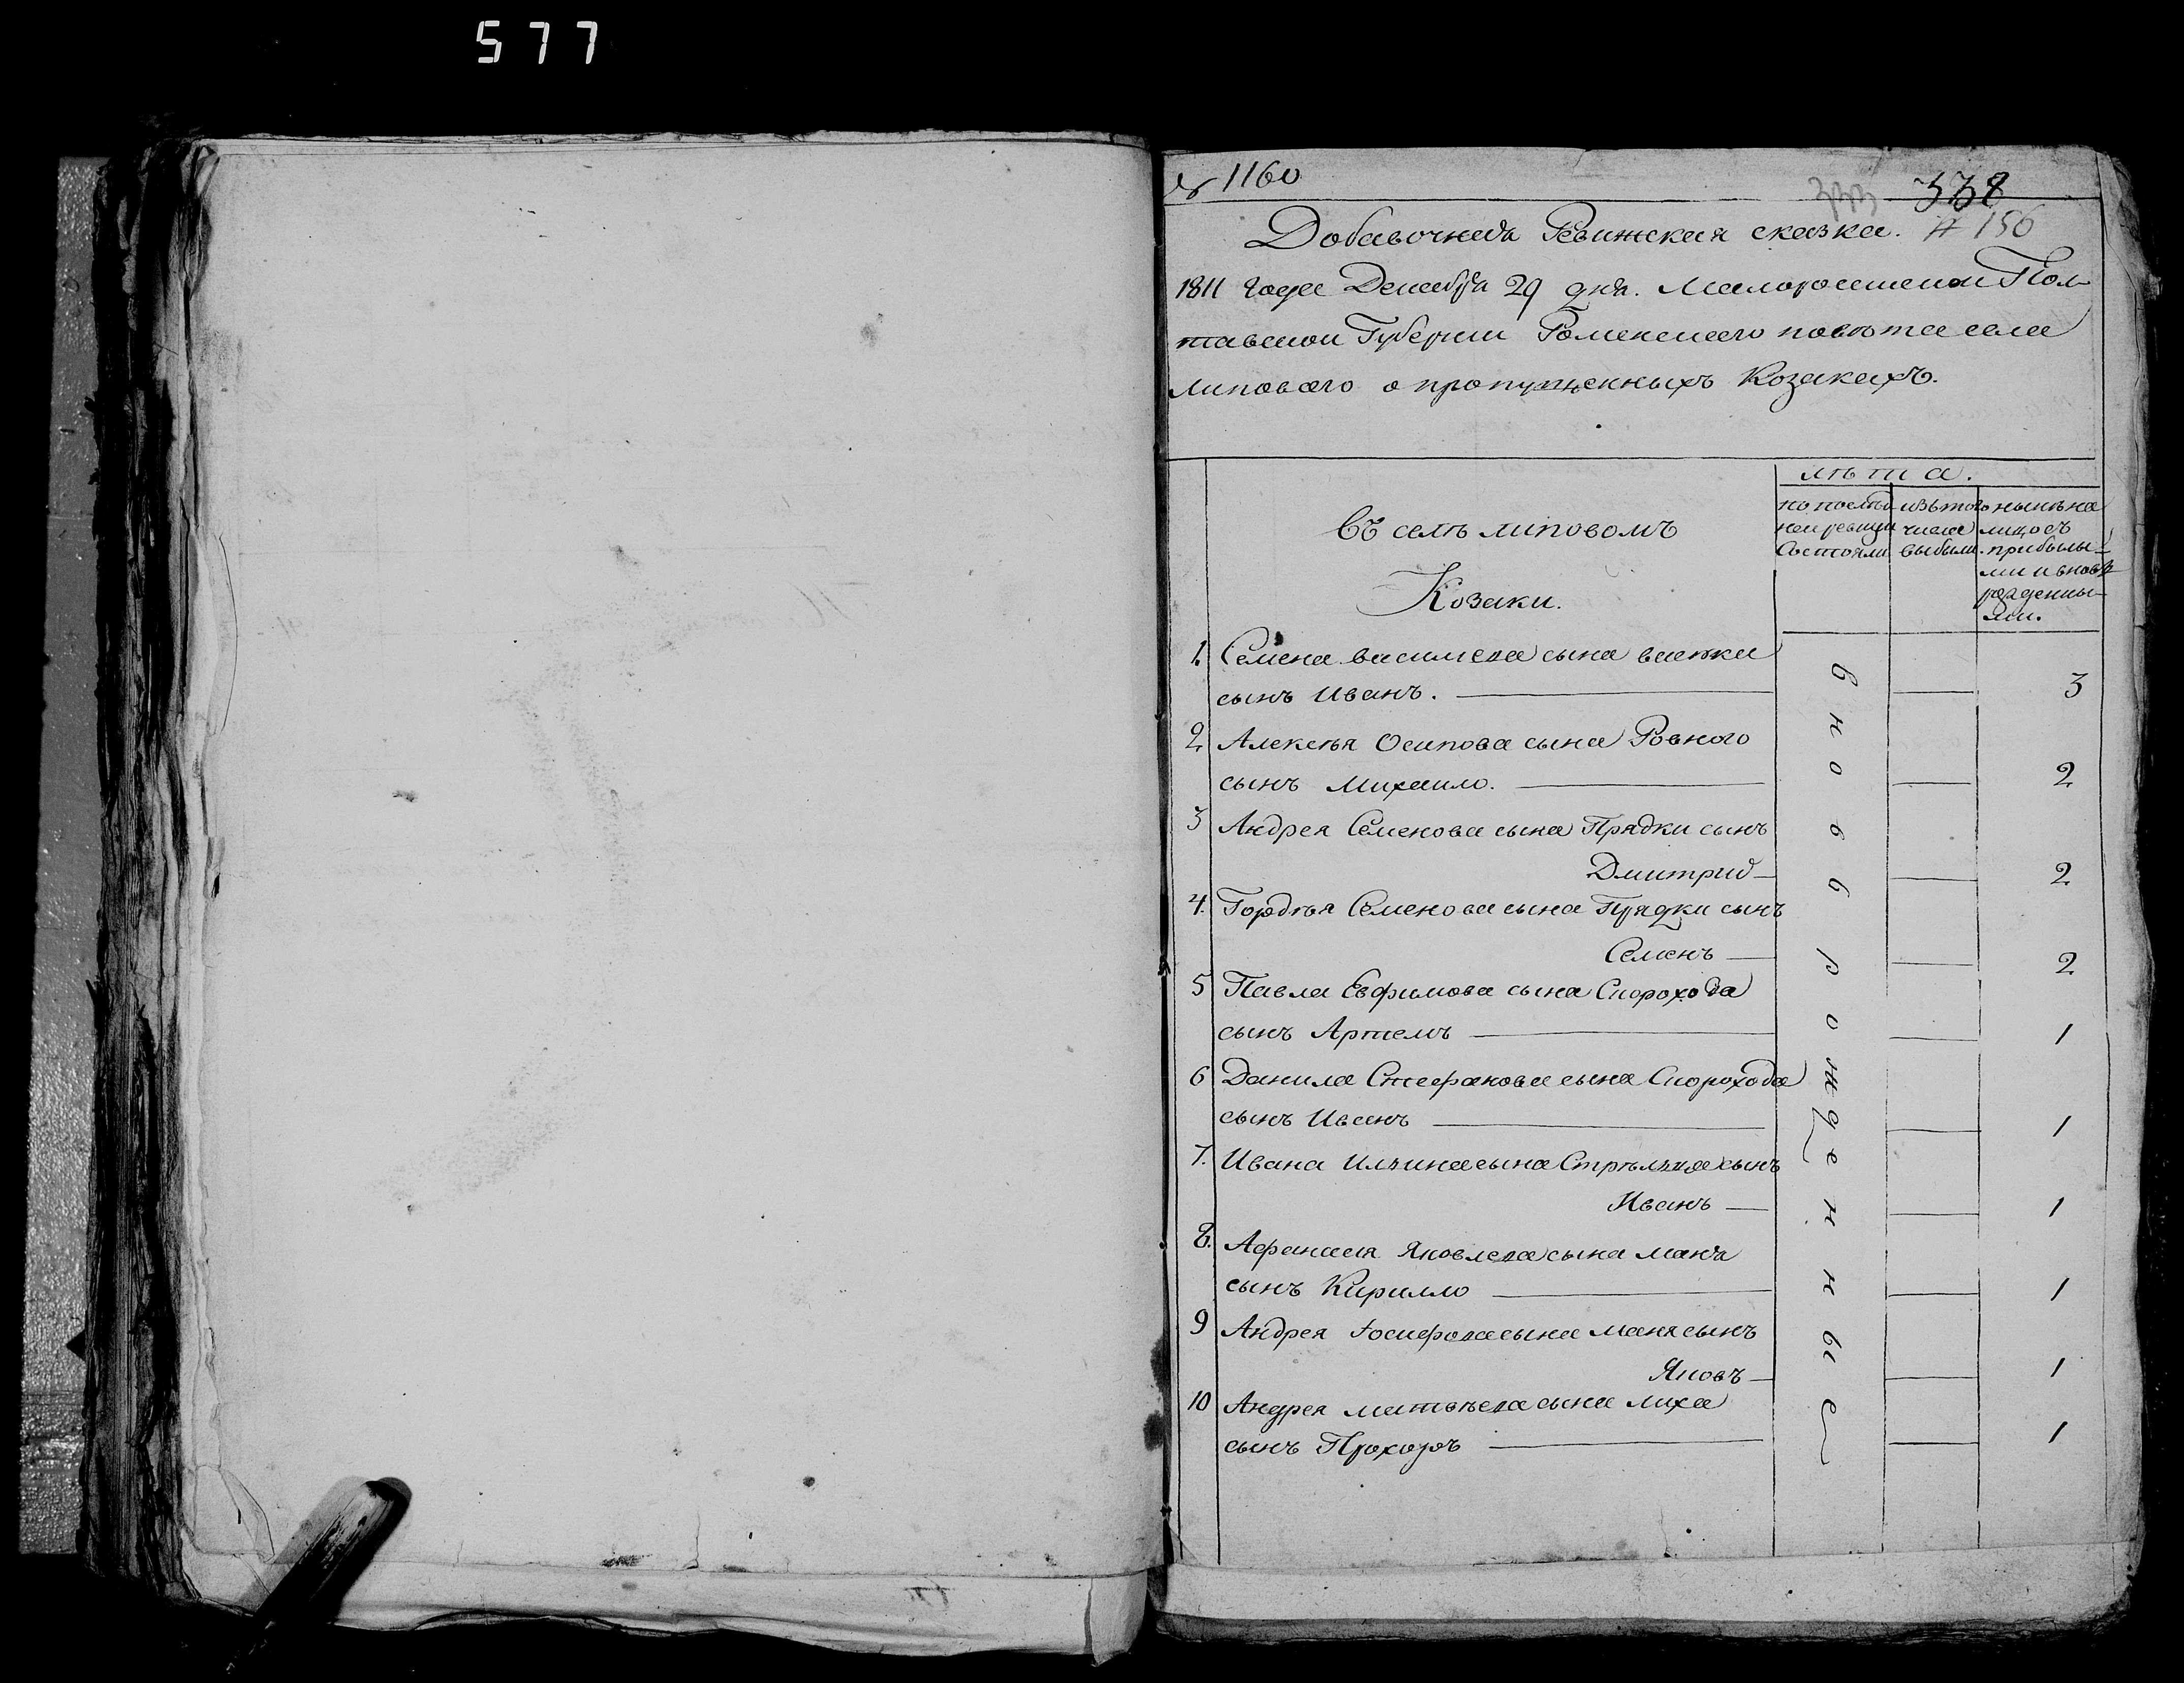 577
№ 1160
333 338
Добавочная Ревижская сказка. # 156
1811 года Декабря 29 дня. Малоросийской Пол-
тавской Губернии Роменского повѣта села
липового о пропущенныхъ Козакахъ.
лѣта.
въ селѣ липовомъ
Козаки.
по послѣд-
ней ревизіи
состояли
изъ того
числа
выбыли.
нынѣ на
лицо съ
прибылы-
ми и вновь
рожденны-
ми.
вновь рожденные
1. Семена василева сына васка
сынъ Иванъ. — — 3
2. Алексѣя Осипова сына Ровного
сынъ Михаило. — — 2
3 Андрея Семенова сына Прядки сынъ
Дмитрий — — 2
4. Гордѣя Семенова сына Прядки сынъ
Семенъ — — 2
5 Павла Евфимова сына Скорохода
сынъ Артемъ — — 1
6 Данила Стефанова сына Скорохода
сынъ Иванъ — — 1
7. Ивана Ильина сына Стрѣльця сынъ
Иванъ — — 1
8. Афанасія Яковлева сына маня
сынъ Кирилло — — 1
9 Андрея Іосифова сына маня сынъ
Яковъ — — 1
10 Андрея матвѣева сына лиха
сынъ Прохоръ — — 1